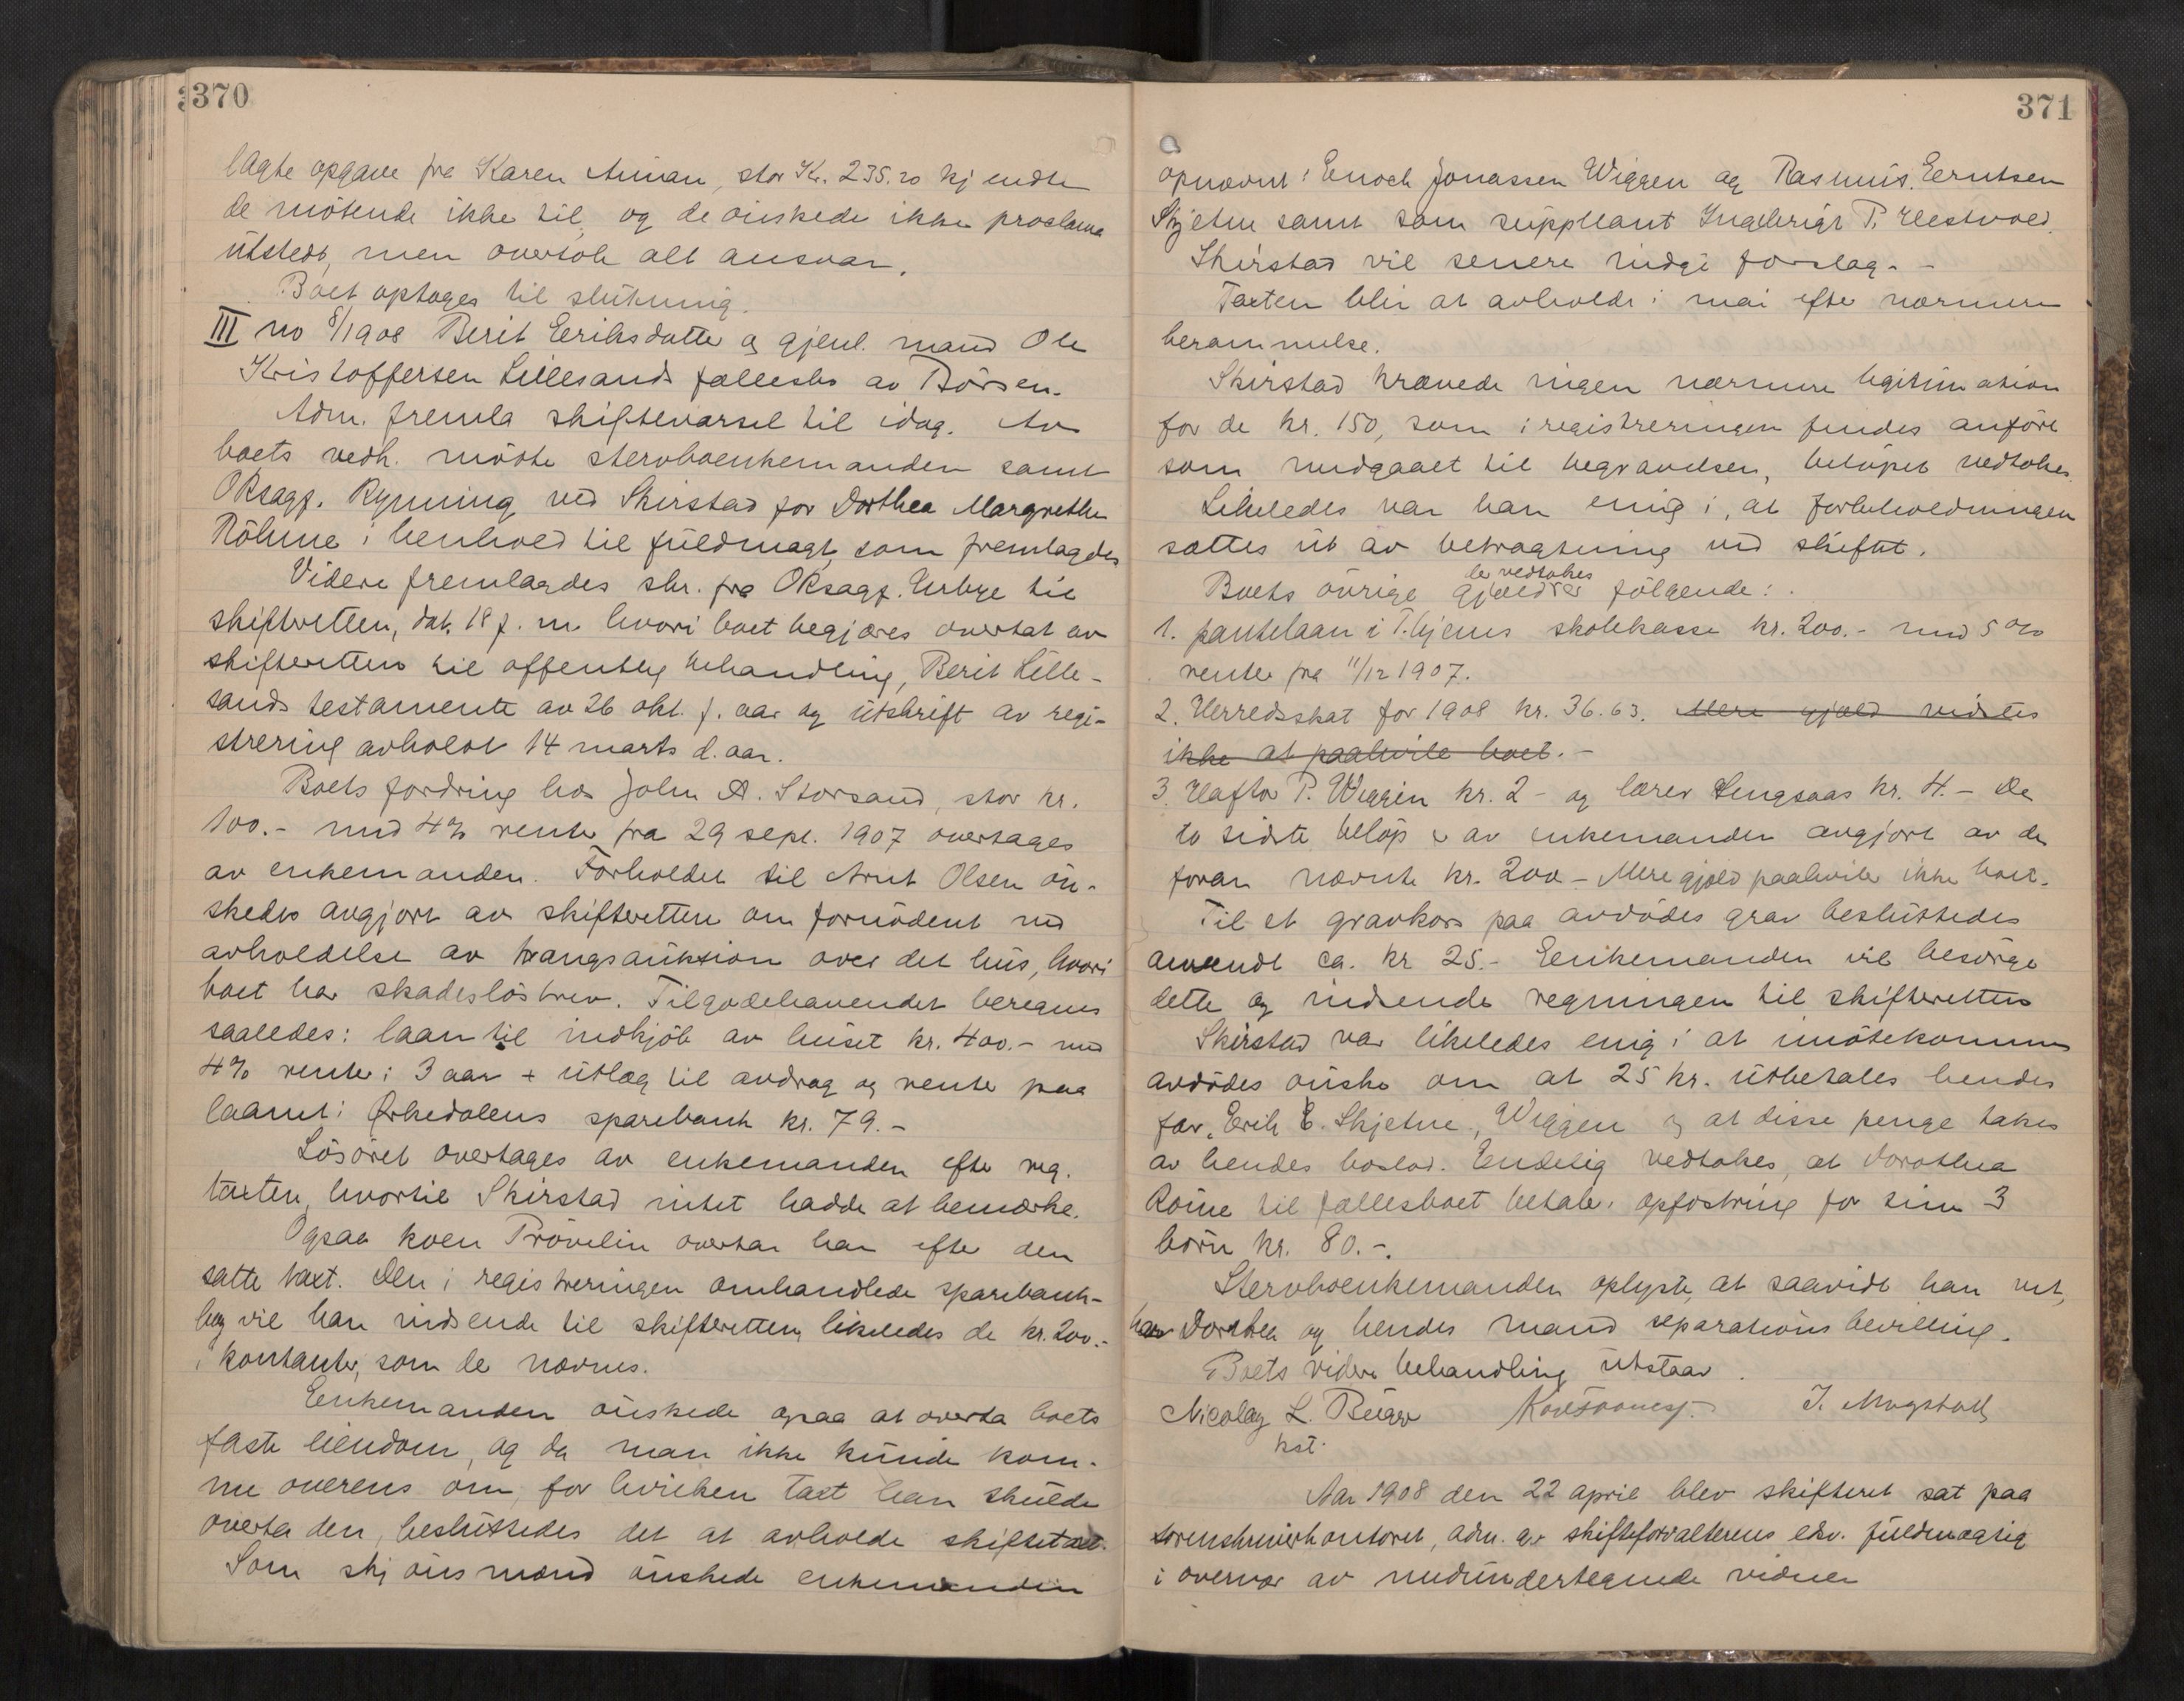 370
lagte opgave fra Karen Aunan, stor Kr. 235.20 kjendte
de mötende ikke til, og de önskede ikke proclama
utstedt, men overtok alt ansvar.
Boet optoges til slutning.
III no 8/1908 Berit Eeriksdatter og gjenl. mand Ole
Kristoffersen Lillesands fællesbo av Börsen.
Adm. fremla skiftevarsel til idag. Av
boets vedk. mödte stervboenkemanden samt
OKsagf. Rynning ved Skirstad for Dorthea Margrethe
Röhme i henhold til fuldmagt, som fremlagdes
Videre fremlagdes skr. fra OKsagf. Urbye til
skifteretten, dat. 18 f. m hvori boet begjæres overtat av
skifteretten til offentlig behandling, Berit Lille-
sands testamente av 26 okt. f. aar og utskrift av regi-
strering avholdt 14 marts d. aar.
Boets fordring hos John A. Storsand, stor kr.
100.- med 4% rente fra 29 sept. 1907 overtages
av enkemanden. Forholdet til Arnt Olsen ön-
skedes avgjort av skifteretten om fornödent ved
avholdelse av tvangsauktion over det hus, hvori
boet har skadeslösbrev. Tilgodehavendet beregnes
saaledes: laan til indkjöb av huset kr. 400.- med
4% rente i 3 aar + utlæg til avdrag og rente paa
laanet i Ørkedalens sparebank kr. 79.-
Lösöret overtages av enkemanden efter reg.
taxten, hvortil Skirstad intet hadde at bemærke.
Ogsaa koen Prövelin overtar han efter den
satte taxt. Den i registreringen omhandlede sparebank-
bog vil han indsende til skifteretten, likeledes de kr. 200.-
i kontanter, som der nævnes.
Eenkemanden önskede ogsaa at overta boets
faste eiendom, og da man ikke kunde kom-
me overens om, for hvilken taxt han skulde
overta den, besluttedes det at avholde skiftetaxt.
Som skjönsmænd önskede enkemanden
371
opnævnt: Enoch Jonassen Wiggen og Rasmus Eerntsen
Skjetne samt som suppleant Ingebrigt P. Vestvold.
Skirstad vil senere indgi forslag. -
Taxten blir at avholde i mai efter nærmere
berammelse.
Skirstad krævede ingen nærmere legitimation
for de kr. 150, som i registreringen findes anfört
som medgaaet til begravelsen, belöpet vedtokes.
Likeledes var han enig i, at forbeholdningen
sattes ut av betragtning ved skiftet.
Boets övrige gjæld er följende:
der vedtokes
1. pantelaan i T.hjems skolekasse kr. 200.- med 5%
rente fra 11/12 1907.
2. Herredsskat for 1908 kr. 36.63. Mere gjæld vidstes
ikke at paahvile boet. -
3. Haftor P. Wiggen kr. 2 - og lærer Lengsaas kr. 4. - De
to sidste belöp er av enkemanden avgjort av de
foran nævnte kr. 200 - Mere gjæld paahviler ikke boet.
Til et gravkors paa avdödes grav besluttedes
anvendt ca. kr 25.- Eenkemanden vil besörge
dette og indsende regningen til skifteretten
Skirstad var likeledes enig i at imötekomme
avdödes önske om at 25 kr. utbetales hendes
far, Erik E. Skjetne, Wiggen og at disse penge takes
av hendes boslod. Endelig vedtokes, at Dorothea
Röine til fællesboet betaler i opfostring for sine 3
börn kr. 80.-.
Stervboenkemanden oplyste, at saavidt han vet,
har Dorthea og hendes mand separationsbevilling.
Boets videre behandling utstaar.
Nicolay L. Bugge J. Mogstad
kst.
Aar 1908 den 22 april blev skifteret sat paa
sorenskriverkontoret, adm. av skifteforvalterens edsv. fuldmægtig
i overvær av medundertegnede vidner